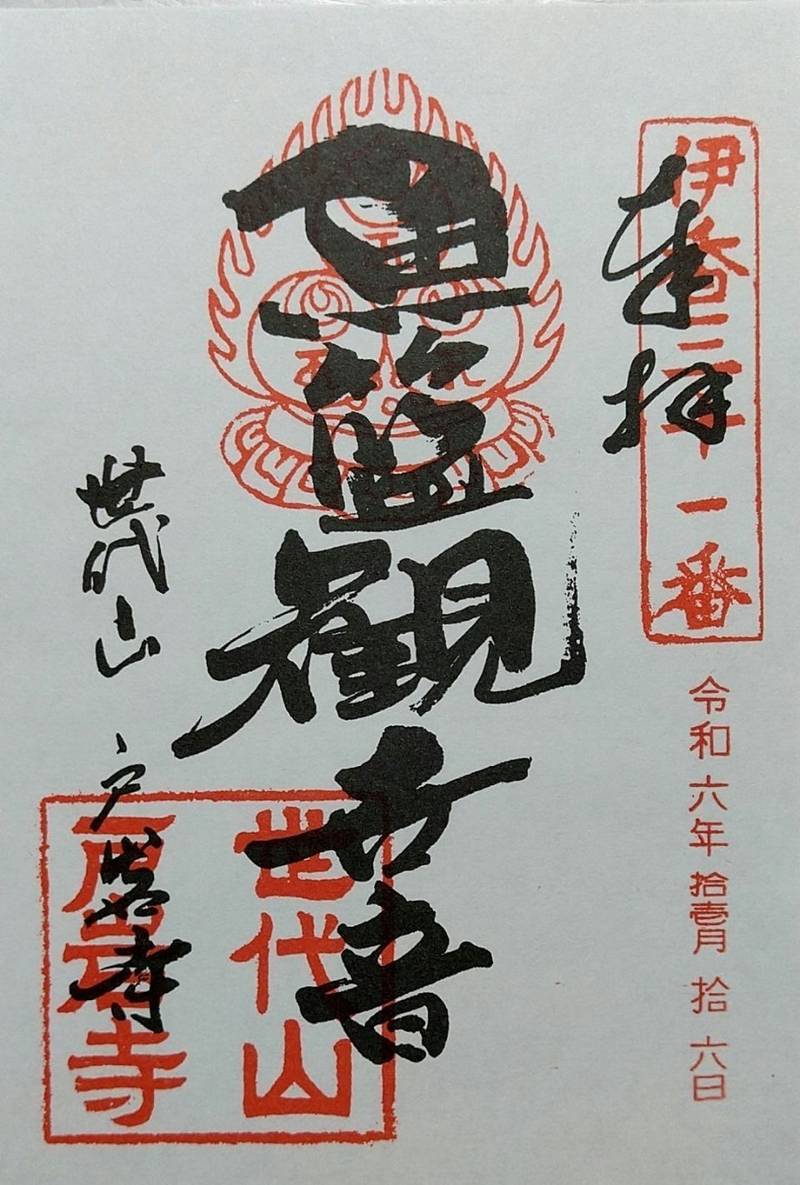 伊香三十一番
奉拝
令和六年拾壱月拾六日
魚籃観世音
世代山 戸岩寺
世代山
戸岩寺